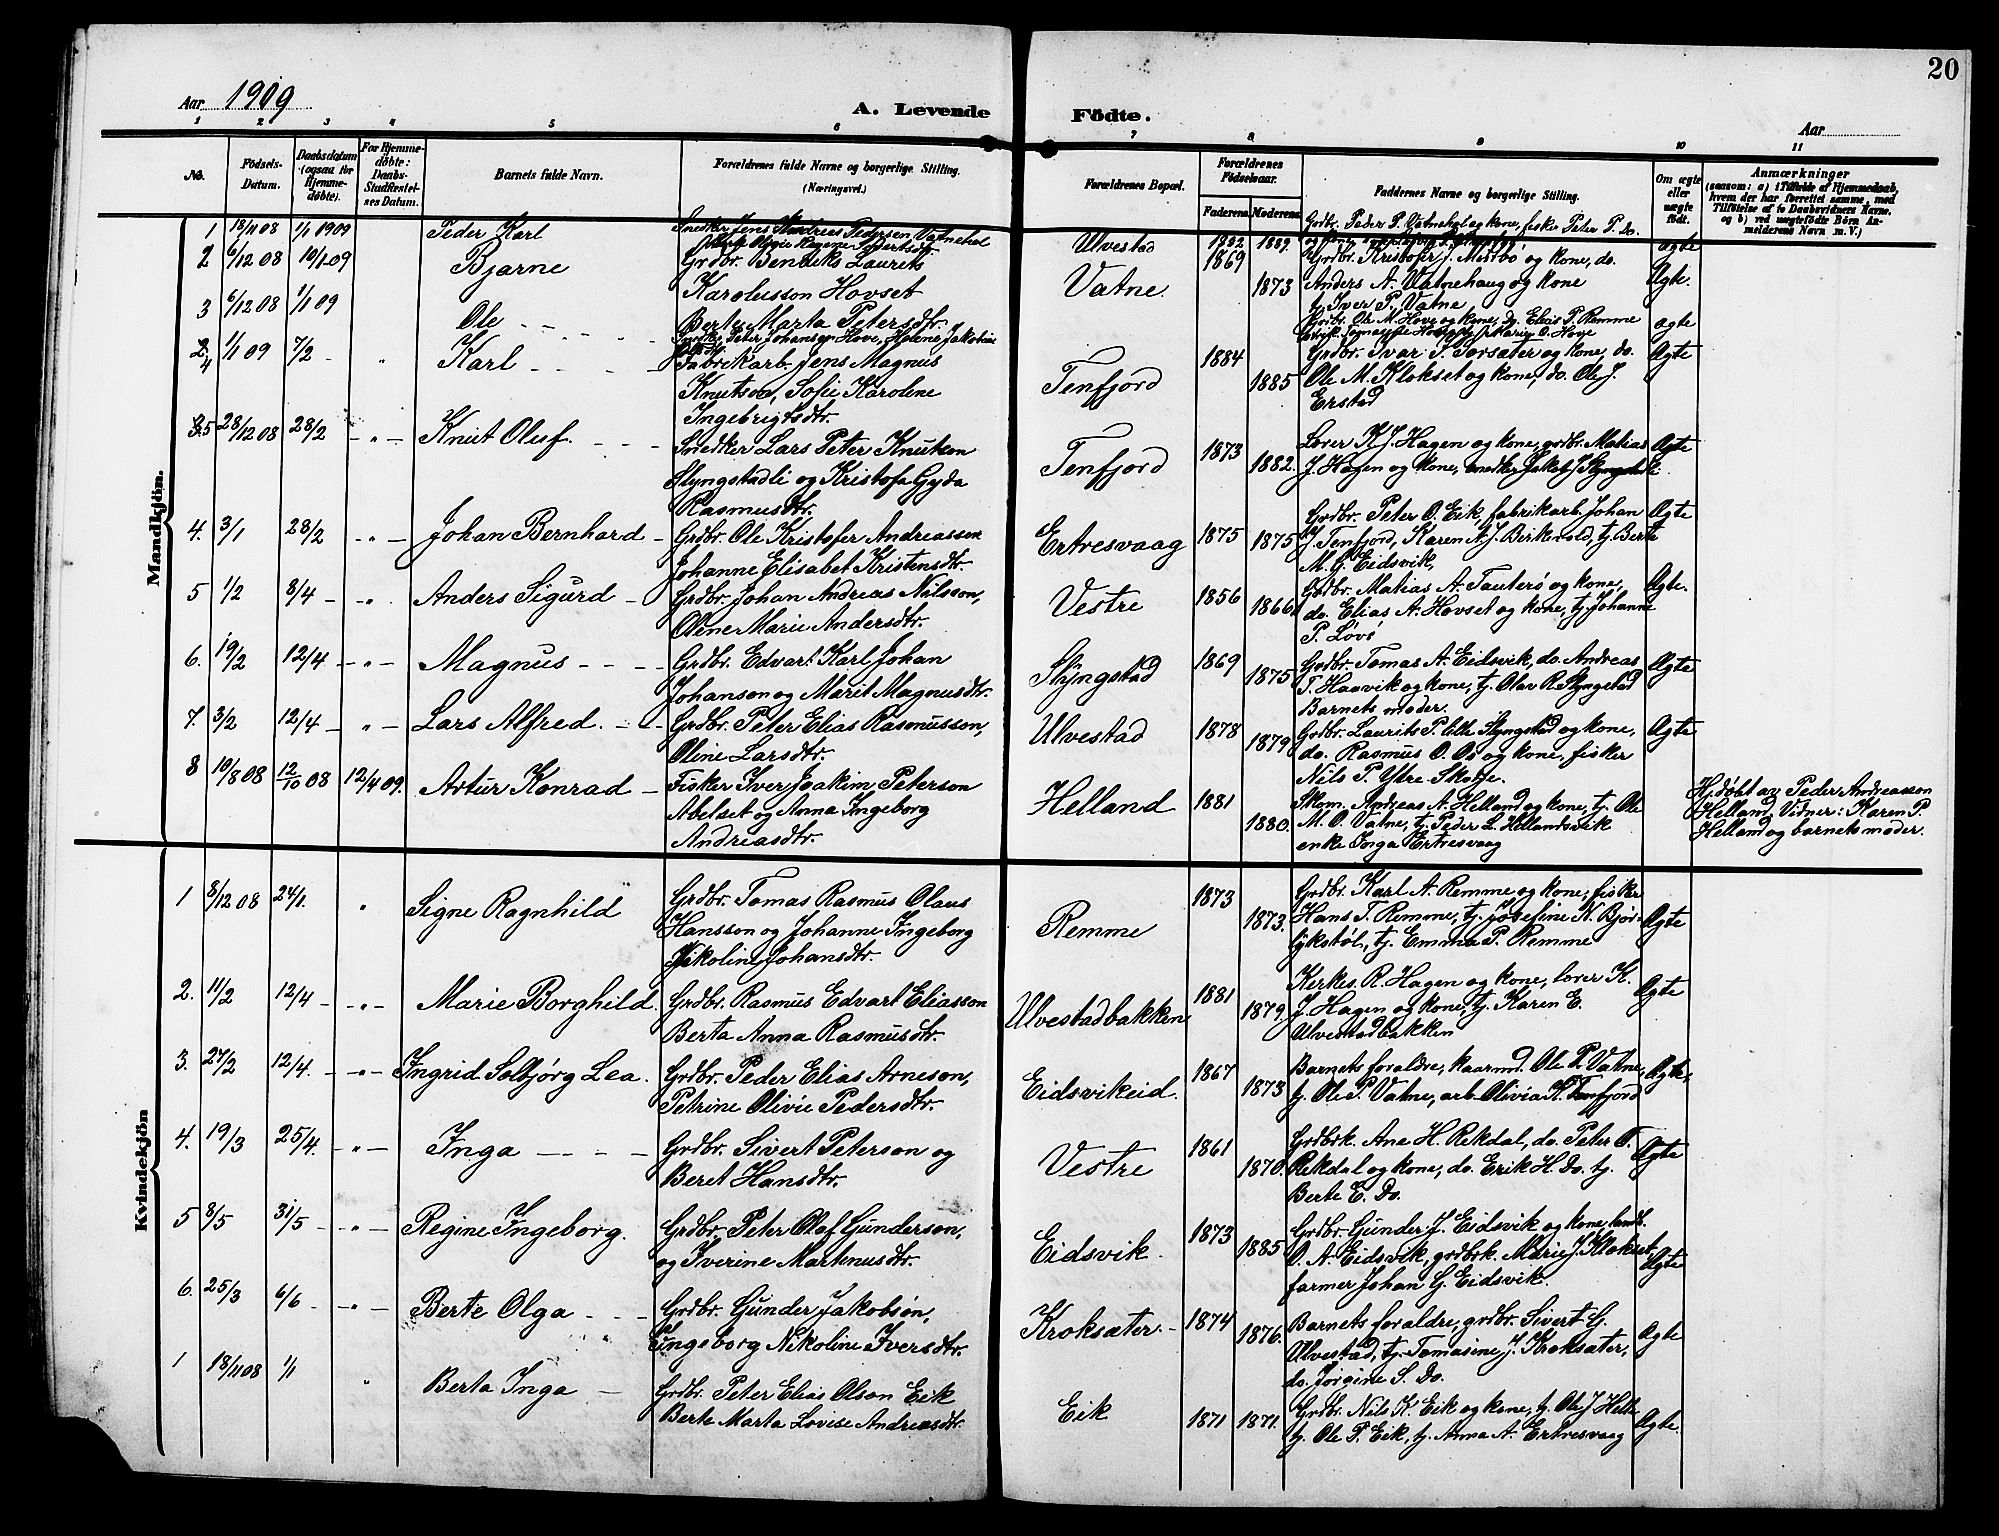 20
Aar 1909
A. Levende Födte.
Aar
1 2 3 4 5 6 7 8 9 10 11
No.
Födsels-Datum.
Daabsdatum (ogsaa for Hjemmedöbte).
For Hjemmedöbte: Daabs-Stadfæstelses Datum.
Barnets fulde Navn.
Forældrenes fulde Navne og borgerlige Stilling.
(Næringsvei.)
Forældrenes Bopæl.
Forældrenes Födselsaar.
Faderens. Moderens.
Faddernes Navne og borgerlige Stilling.
Om ægte eller uægte födt.
Anmærkninger
(saasom: a) i Tilfælde af Hjemmedaab, hvem der har forrettet samme, med Tilföielse af to Daabsvidners Navne, og b) ved uægtefödte Börn Anmelderens Navn m. V.)
Mandkjön.
1 18/11 08 1/1 1909 Peder Karl
Snedker Jens Andreas Pedersen Vatnehol
Ulvestad 1882 1889
Grdbr. Peder P. Vatnehol og kone, fisker Peter P. Do.
ægte
2 6/12 08 10/1 09 Bjarne
Grdbr. Bendiks Laurits
Karolusson Hovset
Berte Marta Petersdtr.
Vatne 1869 1873
Grdbr. Kristofer J. Mestbö og kone, do.
Anders A. Vatnehaug og kone
tj. Iver P. Vatne
Ægte.
3 6/12 08 1/1 09 Ole
Peter Johansen Hove, Helene Jakobine
Grdbr. Ole M. Hove og kone, do. Elias P. Remme
ægte
4 1/1 09 7/2 " Karl
Fabrikarb. Jens Magnus
Knutson, Sofie Karoline
Ingebrigtsdtr.
Tenfjord 1884 1885
Grdbr. Ivar T. Torsæter og kone, do.
Ole M. Klokset og kone, do. Ole J.
Erstad
Ægte
5 28/12 08 28/2 - " - Knut Oluf
Snedker Lars Peter Knutsen
Slyngstadli og Kristofa Gyda
Rasmusdtr.
Tenfjord 1873 1882.
Lærer K. J. Hagen og kone, grdbr. Matias
J. Hagen og kone, snedker Jakob J. Slyngstadli
Ægte
4. 3/1 28/2 - " - Johan Bernhard
Grdbr. Ole Kristofer Andreasson
Johanne Elisabet Kristensdtr.
Ertresvaag 1875 1875
Grdbr. Peter O. Eik, fabrikarb. Johan
J. Tenfjord, Karen A. J. Birkevold, tj. Berte
M. G. Eidsvik,
Ægte
5 1/2 8/4 - " Anders Sigurd
Grdbr. Johan Andreas Nilsson,
Olene Marie Andersdtr.
Vestre 1856 1866
Grdbr. Matias A. Tauterö og kone,
do. Elias A. Hovset og kone, tj. Johanne
P. Lövö
Ægte.
6. 19/2 12/4 - " - Magnus
Grdbr. Edvart Karl Johan
Johanson og Marit Magnusdtr.
Slyngstad 1869 1875
Grdbr. Tomas A. Eidsvik, do. Andreas
T. Haavik og kone, tj. Olav R. Slyngstad
Barnets moder.
Ægte
7. 3/2 12/4 - " - Lars Alfred
Grdbr. Peter Elias Rasmusson,
Oline Larsdtr.
Ulvestad 1878 1879
Grdbr. Laurits P. Slyngstad og kone,
do. Rasmus O. Os og kone, fisker
Nils P. Ytre-Skotje.
Ægte
8 10/8 08 12/10 08 12/4 09. Artur Konrad
Fisker Iver Joakim Peterson
Abelset og Anna Ingeborg
Andreasdtr.
Helland 1881 1880.
Skom. Andreas A. Helland og kone, tj. Ole
M. O. Vatne, tj. Peder L. Hellandsvik
enke Inga Ertresvaag
Hj.döbt av Peder Andreasson
Helland, Vidner: Karen P.
Helland og barnets moder.
Kvindekjön
1 8/12 08 24/1. " Signe Ragnhild
Grdbr. Tomas Rasmus Olaus
Hansson og Johanne Ingeborg
Nikoline Johansdtr.
Remme 1873 1873.
Grdbr. Karl A. Remme og kone, fisker
Hans T. Remme, tj. Josefine N. Björ-
lykstöl, tj. Emma P. Remme
Ægte
2. 11/2 12/4 - " - Marie Borghild.
Grdbr. Rasmus Edvart Eliasson
Berta Anna Rasmusdtr.
Ulvestadbakken 1881 1879.
Kirkes. R. Hagen og kone, lærer K.
J. Hagen og kone, tj. Karen E.
Ulvestadbakken
Ægte
3. 27/2 12/4. - " - Ingrid Solbjörg Lea.
Grdbr. Peder Elias Arneson,
Petrine Olivie Pedersdtr.
Eidsvikeid 1867 1873
Barnets foraldre, kaarmd. Ole P. Vatne,
tj. Ole P. Vatne, arb. Olivia K. Tenfjord
Ægte,
4. 19/3 25/4. - " - Inga
Grdbr. Sivert Peterson og
Beret Hansdtr.
Vestre 1861 1870.
Grdbrk. Ane H. Rekdal, do. Peter O.
Rekdal og kone, do. Erik H. Do. tj.
Berte E. Do.
Ægte
5 8/5 31/5 - " - Regine Ingeborg.
Grdbr. Peter Olaf Gunderson,
og Iverine Martinusdtr.
Eidsvik. 1873 1885
Grdbr. Gunder J. Eidsvik og kone, landh.
O. A. Eidsvik, grdbrk. Marie J. Klokset,
farmer Johan G. Eidsvik.
Ægte
6. 25/3 6/6 - " - Berte Olga
Grdbr. Gunder Jakobsön,
Ingeborg Nikoline Iversdtr.
Kroksæter. 1874 1876.
Barnets foraldre, grdbr. Sivert G.
Ulvestad, tj. Tomasine J. Kroksæter,
do. Jörgine S. Do.
Ægte
1 18/11 08 1/1 " Berta Inga
Grdbr. Peter Elias Olson Eik
Berte Marta Lovise Andreasdtr.
Eik 1871 1871.
Grdbr. Nils K. Eik og kone, tj. Ole J. Hille
tj. Ole P. Eik, tj. Anna A. Ertresvaag
Ægte.